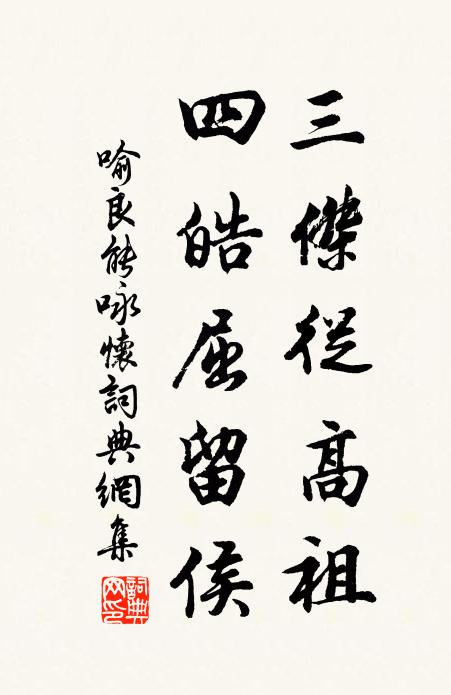 三傑從高祖
四皓屈留侯
喻良能咏懷詞典網集
詞典网印